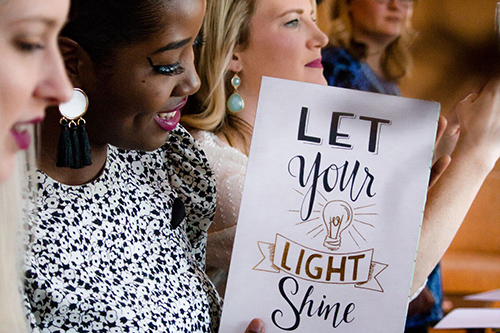 LET
Your
LIGHT
Shine